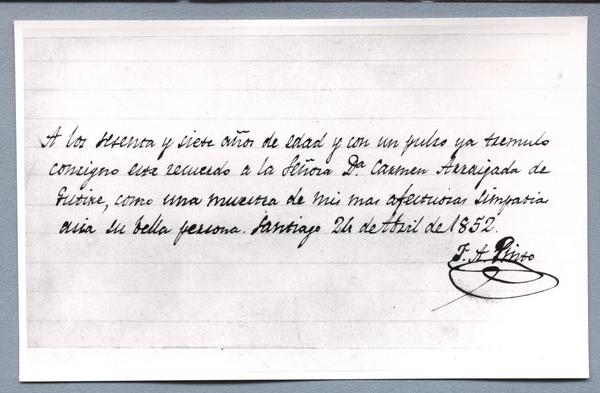 A los sesenta y siete años de edad y con un pulso ya tremulo
consigno este recuerdo a la Señora Dª Carmen Arraigada de
Gutike, como una muestra de mis mas afectuosas simpatias
asia su bella persona. Santiago 24 de Abril de 1852.
F. A. Pinto